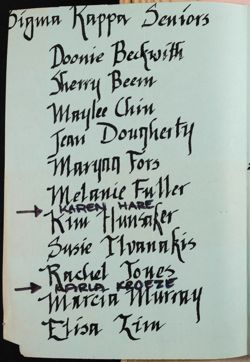 Sigma Kappa Seniors
Doonie Beckwith
Sherry Beem
Maylee Chin
Jean Dougherty
Marynn Fors
Melanie Fuller
→ KAREN HARE
Kim Hunsaker
Susie Ilvanakis
Rachel Jones
→ KARLA KROEZE
Marcia Murray
Elisa Zim